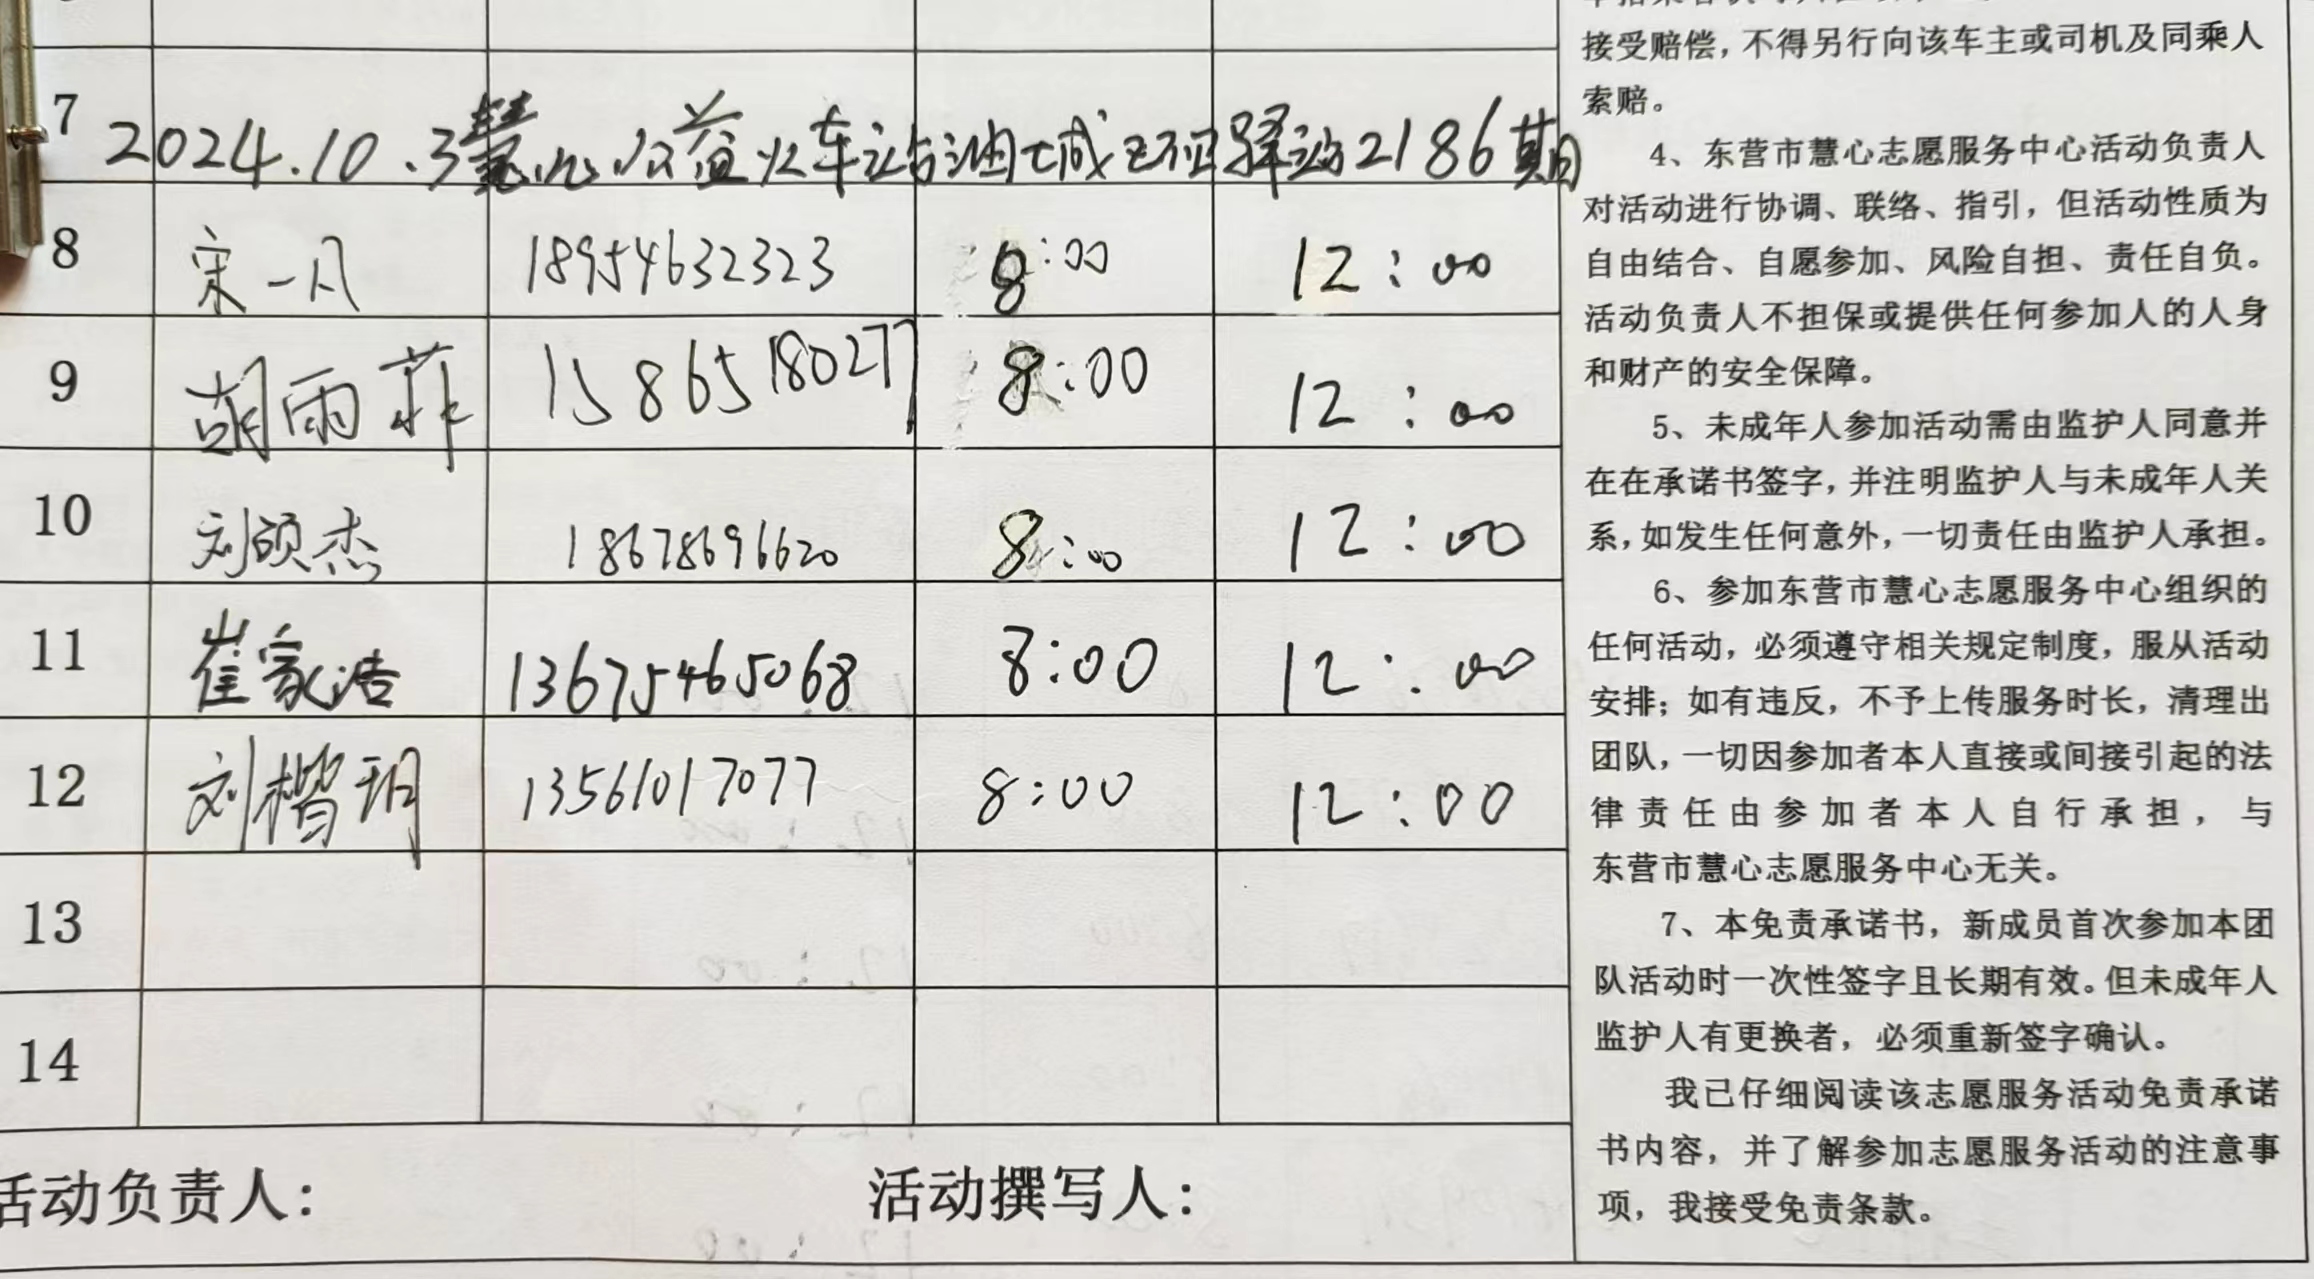 7 2024.10.3慧心公益火车站油城正不正驿站2186期
8 宋一凡 18954632323 8:00 12:00
9 胡雨菲 15865180277 8:00 12:00
10 刘硕杰 18678696620 8:00 12:00
11 崔家浩 13675465068 8:00 12:00
12 刘楷玥 13561017077 8:00 12:00
13
14
活动负责人： 活动撰写人：
接受赔偿，不得另行向该车主或司机及同乘人
索赔。
4、东营市慧心志愿服务中心活动负责人
对活动进行协调、联络、指引，但活动性质为
自由结合、自愿参加、风险自担、责任自负。
活动负责人不担保或提供任何参加人的人身
和财产的安全保障。
5、未成年人参加活动需由监护人同意并
在在承诺书签字，并注明监护人与未成年人关
系，如发生任何意外，一切责任由监护人承担。
6、参加东营市慧心志愿服务中心组织的
任何活动，必须遵守相关规定制度，服从活动
安排；如有违反，不予上传服务时长，清理出
团队，一切因参加者本人直接或间接引起的法
律责任由参加者本人自行承担，与
东营市慧心志愿服务中心无关。
7、本免责承诺书，新成员首次参加本团
队活动时一次性签字且长期有效。但未成年人
监护人有更换者，必须重新签字确认。
我已仔细阅读该志愿服务活动免责承诺
书内容，并了解参加志愿服务活动的注意事
项，我接受免责条款。